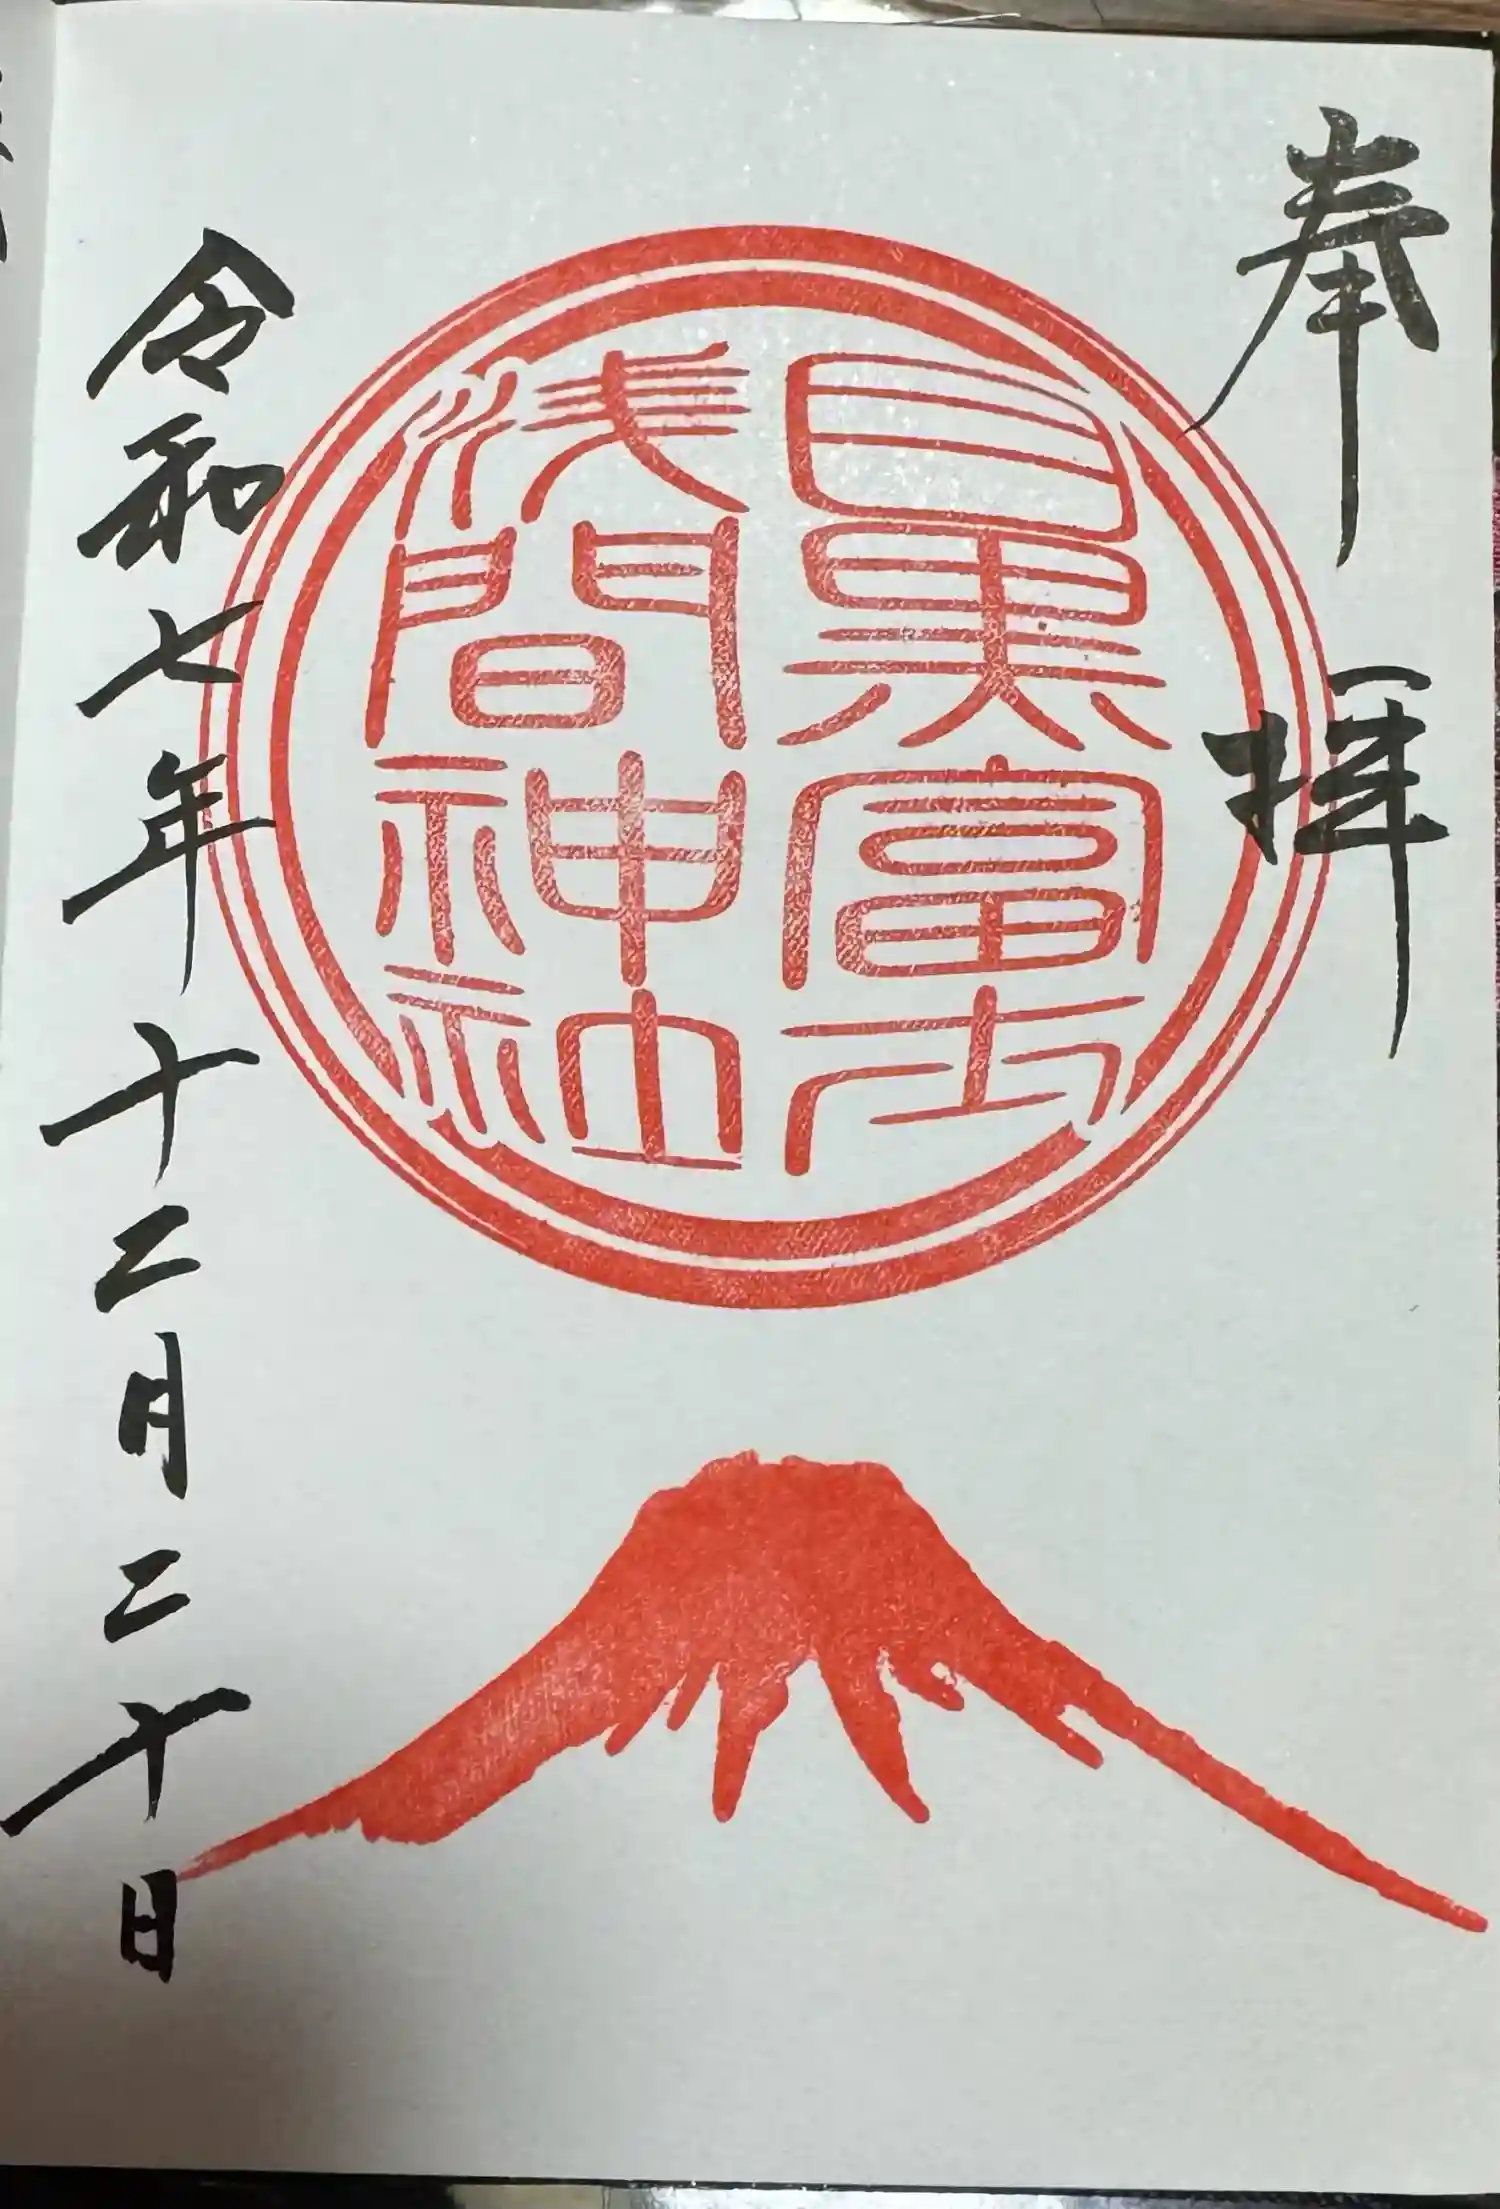 奉拝
目黒富士
浅間神社
令和七年十二月二十日